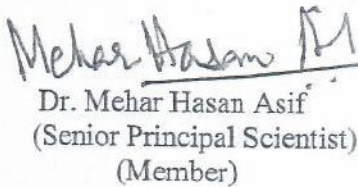 Mehar Hasan
Dr. Mehar Hasan Asif
(Senior Principal Scientist)
(Member)